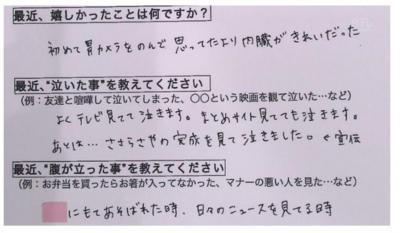 最近、嬉しかったことは何ですか？
初めて胃カメラをのんで思ってたより内臓がきれいだった
最近、“泣いた事”を教えてください
（例：友達と喧嘩して泣いてしまった、〇〇という映画を観て泣いた…など）
よくテレビ見てて泣きます。まとめサイト見てても泣きます。
あとは…ささらさやの完成を見て泣きました。←宣伝
最近、“腹が立った事”を教えてください
（例：お弁当を買ったらお箸が入ってなかった、マナーの悪い人を見た…など）
にもてあそばれた時、日々のニュースを見てる時